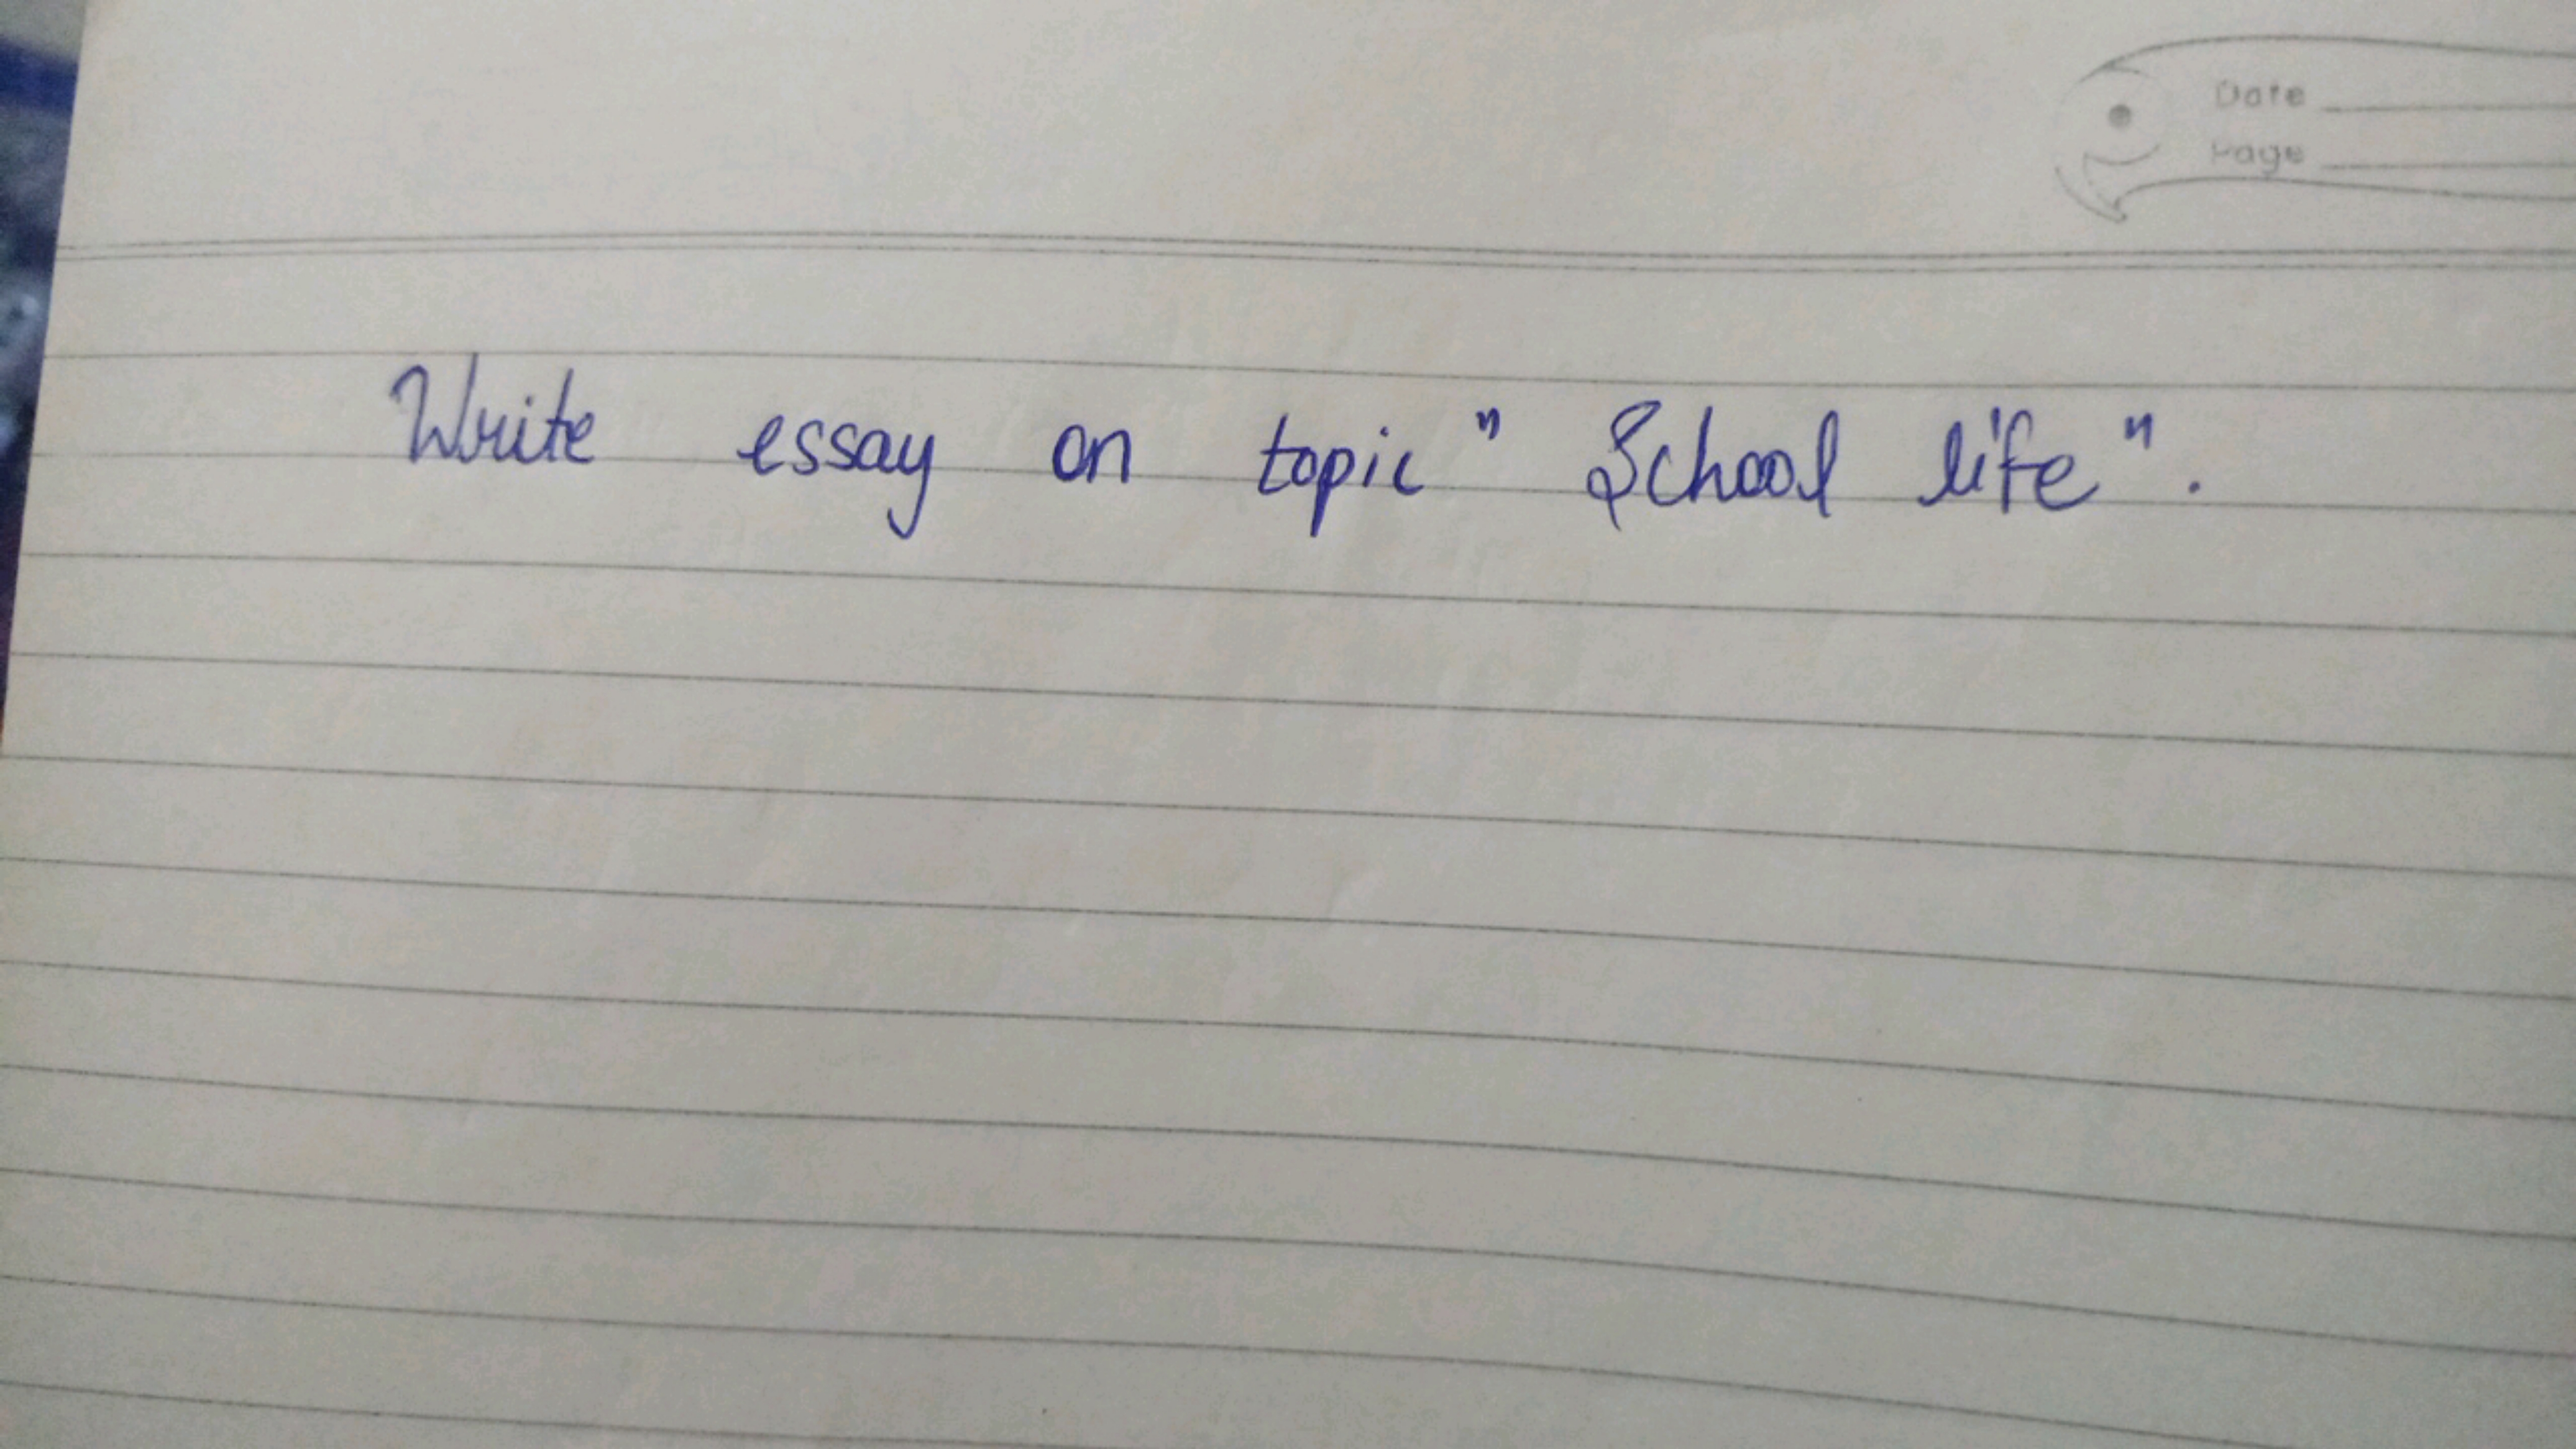 Date
Page
Write essay on topic " School life ".